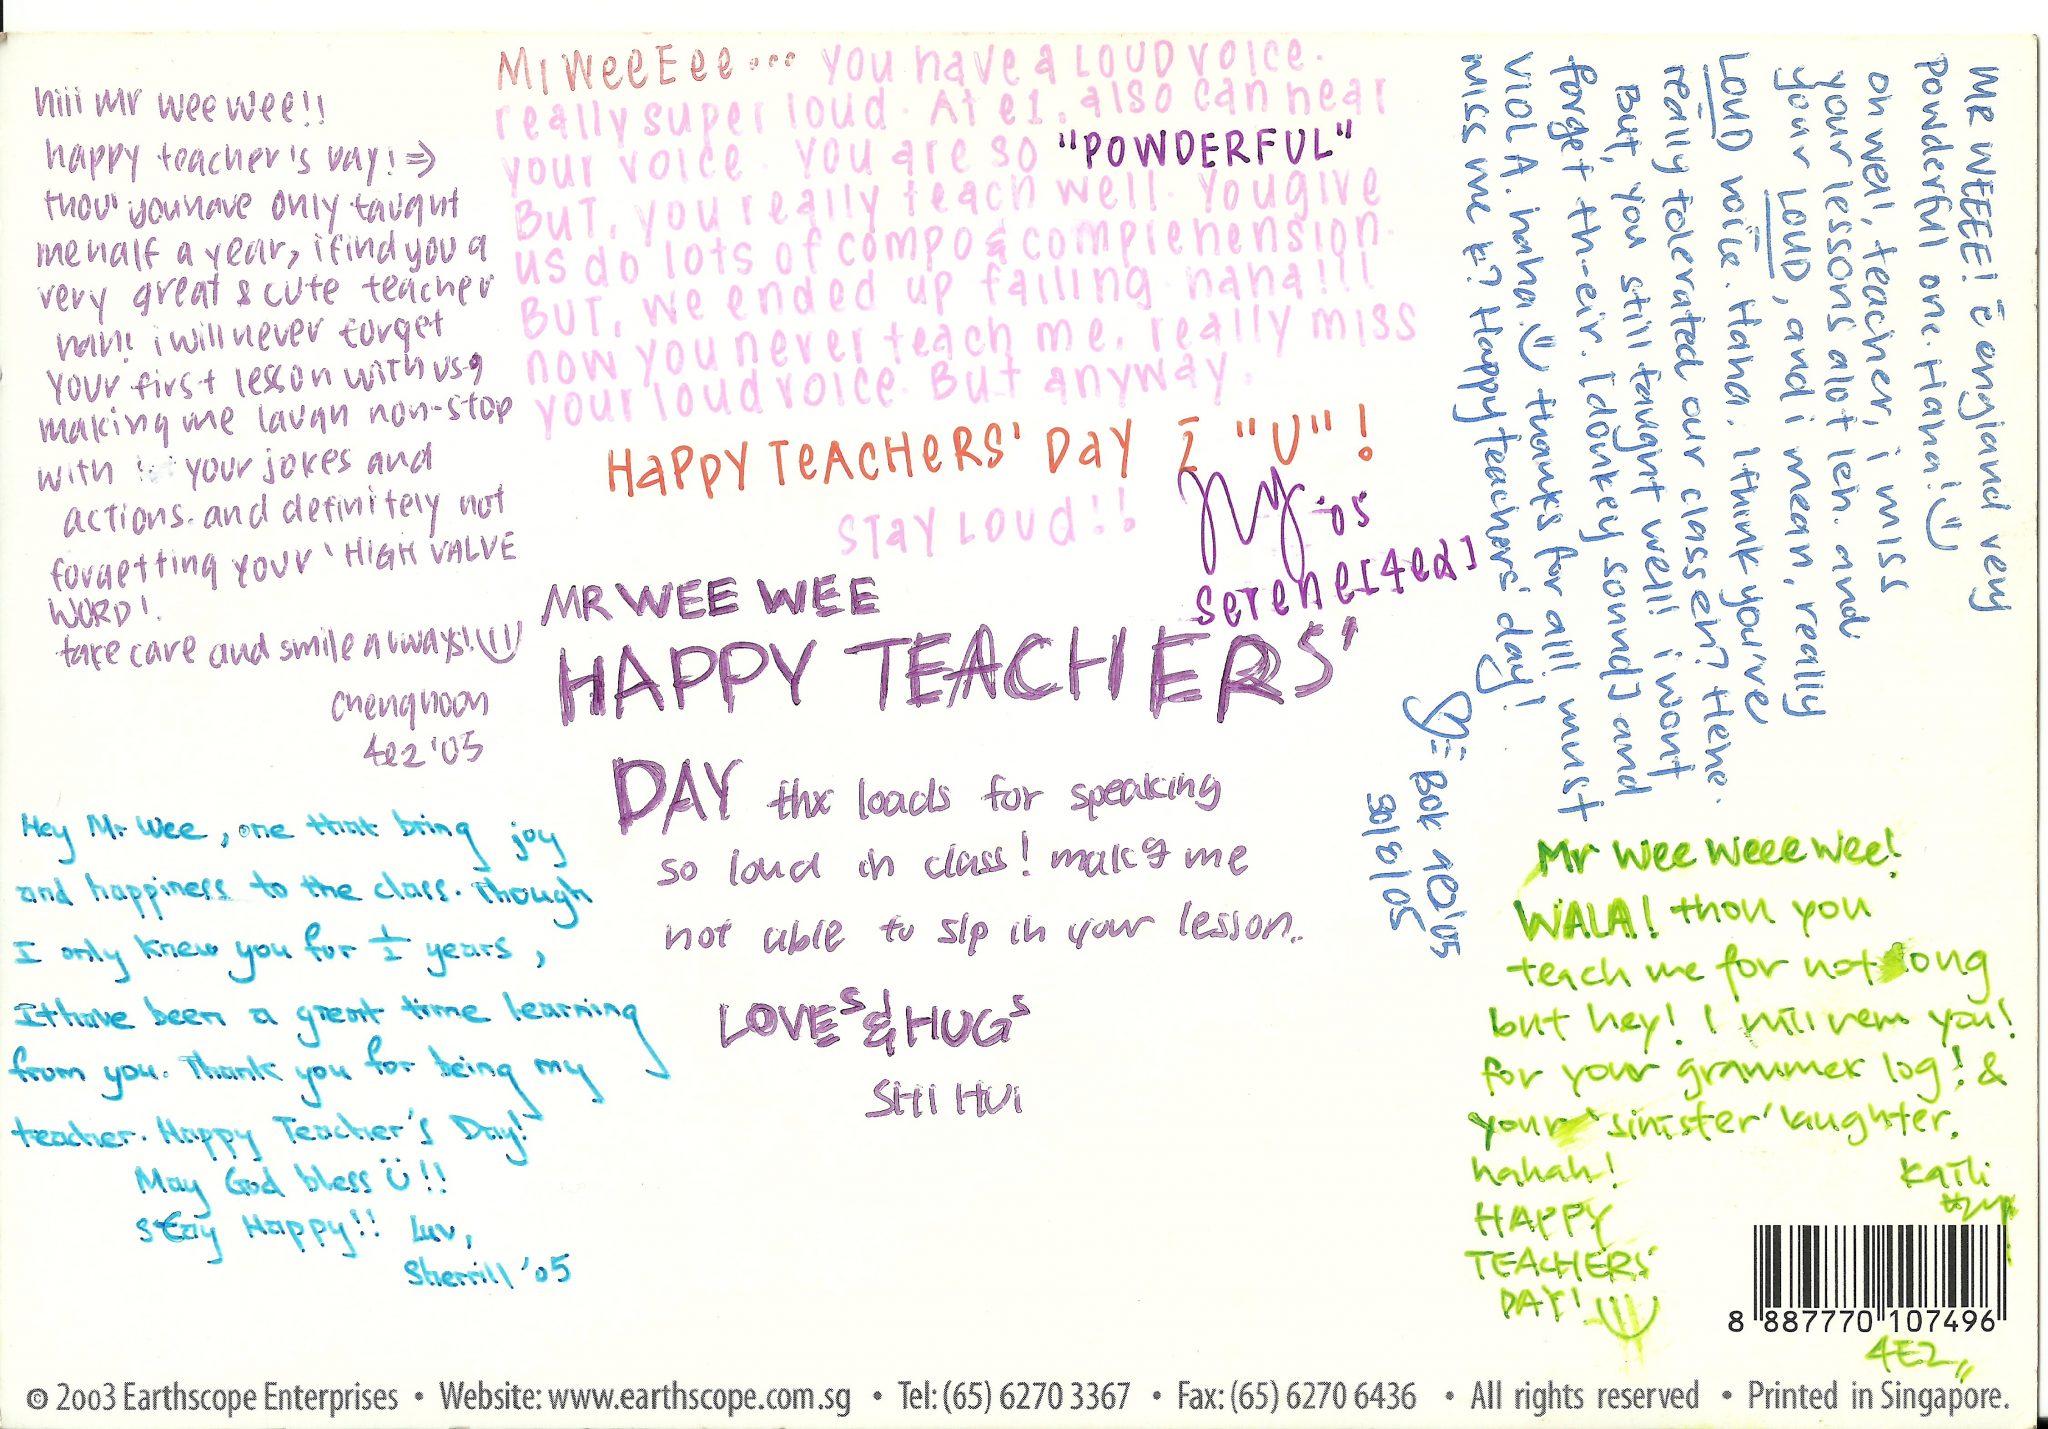 hiii Mr wee wee!!
happy teacher's day! =)
thou' you have only taught
me half a year, i find you a
very great & cute teacher
hah!! i will never forget
your first lesson with us,
making me laugh non-stop
with your jokes and
actions. and definitely not
forgetting your 'HIGH VALVE
WORD!
take care and smile always!
chenghoon
4e2 '05
Mr WeeEee... you have a LOUD voice.
really super loud. At e1, also can hear
your voice. You are so "POWDERFUL"
BUT, you really teach well. You give
us do lots of compo & comprehension.
BUT, we ended up failing. haha!!!
now you never teach me, really miss
your loud voice. But anyway.
HAPPY TEACHERS' DAY 2 "U"!
STAY LOUD!!
'05
serene [4e2]
MR WEE WEE
HAPPY TEACHERS'
DAY thx loads for speaking
so loud in class! makig me
not able to slp in your lesson..
LOVEs & HUGs
SHI HUI
MR WEEE! ē england very
powderful one. Haha!
oh well, teacher, i miss
your lessons alot leh. and
your LOUD, and i mean, really
LOUD voice. Haha. I think you've
really tolerated our class eh? Hehe.
But, you still taught well! i wont
forget th-eir. [donkey sound] and
VIOLA. haha. thanks for all! must
miss me k? Happy teachers' day!
Bok 4e2'05
30/8/05
Hey Mr Wee, one that bring joy
and happiness to the class. Though
I only knew you for ½ years,
It have been a great time learning
from you. Thank you for being my
teacher. Happy Teacher's Day!
May God bless !!
stay Happy!! Luv,
Sherrill '05
Mr Wee Weee Wee!
WALA! thou you
teach me for not long
but hey! I will rem you!
for your grammer log! &
your 'sinister' laughter.
hahah!
HAPPY
TEACHERS'
DAY!
Kaili
4E2
8 887770 107496
© 2003 Earthscope Enterprises • Website: www.earthscope.com.sg • Tel: (65) 6270 3367 • Fax: (65) 6270 6436 • All rights reserved • Printed in Singapore.